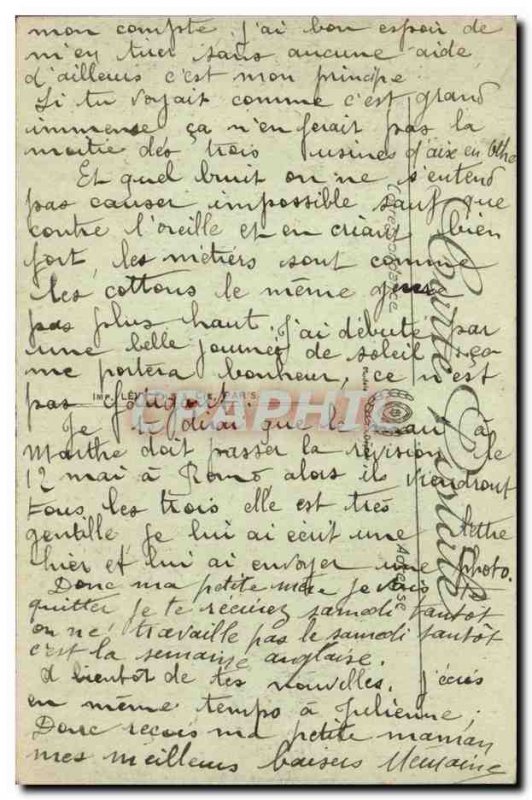 mon compte j'ai bon espoir de
m'en tirer sans aucune aide
d'ailleurs c'est mon principe
Si tu voyait comme c'est grand
immense ça n'en ferait pas la
moitié des trois usines d'aix en Othe
Et quel bruit on ne s'entend
pas causer impossible sauf que
contre l'oreille et en criant bien
fort, les métiers sont comme
les cottons le même genre
pas plus haut. j'ai débuté par
une belle journée de soleil ça
me portera bonheur, ce n'est
pas fatigant.
Je te dirai que le à
Marthe doit passer la révision le
12 mai à alors ils viendront
tous les trois elle est très
gentille, je lui ai écrit une lettre
hier et lui ai envoyer une photo.
Donc ma petite mère je vais te
quitter je te recrirez samedi tantôt
on ne travaille pas le samedi tantôt
c'est la semaine anglaise.
A bientôt de tes nouvelles, j'écris
en même temps à Julienne,
Donc reçois ma petite maman
mes meilleurs baisers Germaine
Carte Postale
Correspondance
Adresse
IMP. LÉVY PARIS
CARAPHIL